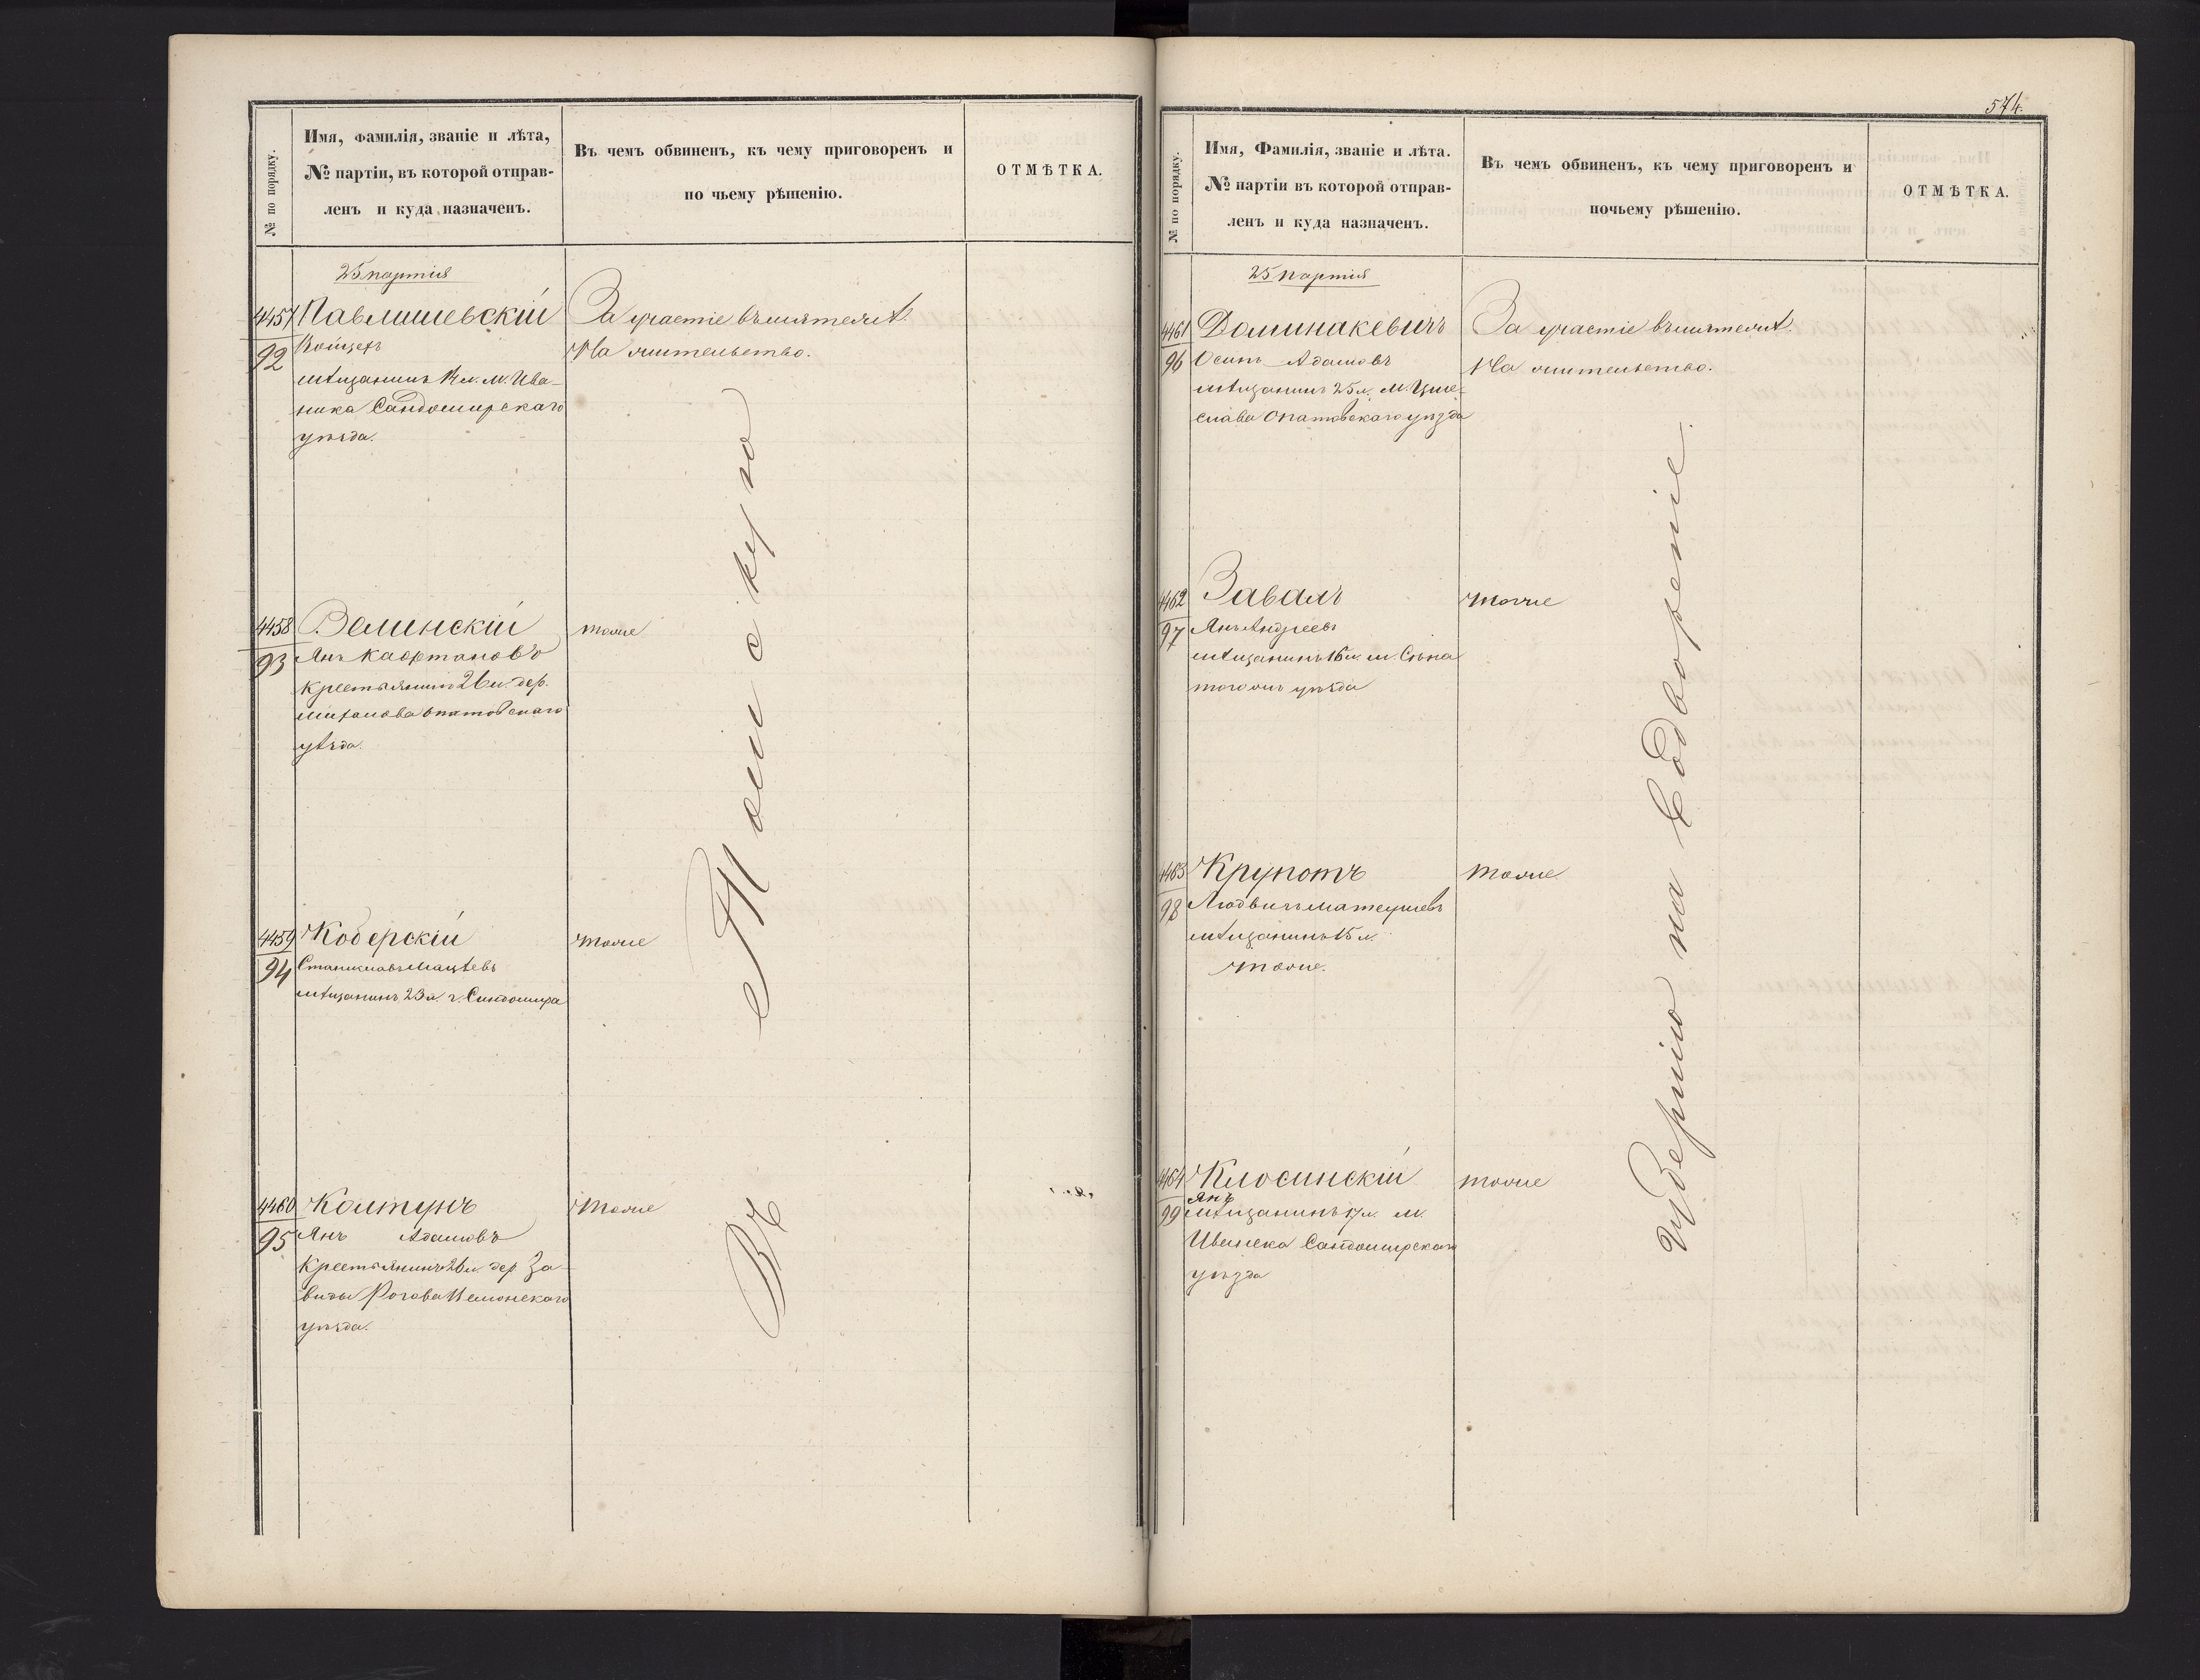 № по порядку.
Имя, фамилія, званіе и лѣта,
№ партіи, въ которой отправ-
ленъ и куда назначенъ.
Въ чемъ обвиненъ, къ чему приговоренъ и
по чьему рѣшенію.
ОТМѢТКА.
25 партія
4457
92
Павлишевскій
Войцехъ
мѣщанинъ 14 л. м. Ива-
ника Сандомирскаго
уѣзда.
За участіе въ мятежѣ.
На жительство.
4458
93
Велинскій
Янъ
крестьянинъ 26 л. дер.
Опатовскаго
уѣзда.
тоже
4459
94
Коберскій
Станиславъ Мацѣевъ
мѣщанинъ 23 л. г. Сандомира
тоже
4460
95
Колтунъ
Янъ Адамовъ
крестьянинъ 26 л. дер. За-
вады
уѣзда.
тоже
Въ Томскую
574.
№ по порядку.
Имя, Фамилія, званіе и лѣта.
№ партіи въ которой отправ-
ленъ и куда назначенъ.
Въ чемъ обвиненъ, къ чему приговоренъ и
почьему рѣшенію.
ОТМѢТКА.
25 партія
4461
96
Доминакевичъ
Осипъ Адамовъ
мѣщанинъ 25 л. м. Цме-
слава Опатовскаго уѣзда
За участіе въ мятежѣ.
На жительство.
4462
97
Завалъ
Янъ Андреевъ
мѣщанинъ 16 л. м.
тогожъ уѣзда
тоже
4463
98
Крупотъ
Людвигъ Матеушевъ
мѣщанинъ 15 л.
тоже.
тоже
4464
99
Клосинскій
Янъ
мѣщанинъ 17 л. м.
Сандомирскаго
уѣзда
тоже
Губернію на водвореніе.